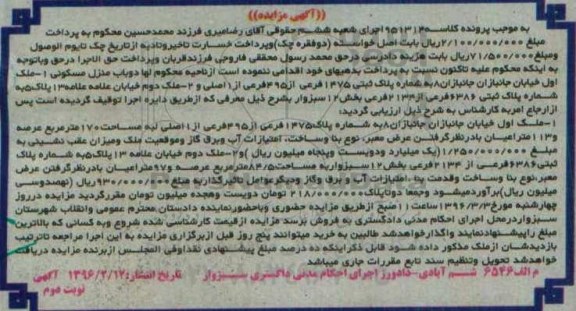 ((آگهی مزایده))
به موجب پرونده کلاسه ۹۵۱۳۱۴ اجرای شعبه ششم حقوقی آقای رضامیری فرزند محمدحسین محکوم به پرداخت
مبلغ ۲/۱۰۰/۰۰۰/۰۰۰ ریال بابت اصل خواسته (دوفقره چک) وپرداخت خسارت تاخیرتادیه ازتاریخ چک تایوم الوصول
ومبلغ ۷۱/۵۰۰/۰۰۰ ریال بابت هزینه دادرسی درحق محمد رسول محققی فاروجی فرزندقربان وپرداخت حق الاجرا درحق وباتوجه
به اینکه محکوم علیه تاکنون نسبت به پرداخت بدهیهای خود اقدامی ننموده است ازناحیه محکوم لها دوباب منزل مسکونی ۱-ملک
اول خیابان جانبازان جانبازان ۸ به شماره پلاک ثبتی ۱۴۷۵ فرعی از ۴۹۵ فرعی از ۱ اصلی و ۲-ملک دوم خیابان علامه علامه ۱۳ پلاک ۵ به
شماره پلاک ثبتی ۶۳۸۶ فرعی از ۲۱۳۴ فرعی بخش ۱۲ سبزوار بشرح ذیل معرفی که ازطریق دایره اجرا توقیف گردیده است پس
ازارجاع امربه کارشناس به شرح ذیل ارزیابی گردید:
۱-ملک اول خیابان جانبازان جانبازان ۸ به شماره پلاک ۱۴۷۵ فرعی از ۴۹۵ فرعی از ۱ اصلی به مساحت ۱۷۰ مترمربع عرصه
و ۱۱۳ متراعیان بادرنظر گرفتن عرض معبر، نوع بنا وساخت، امتیازات آب وبرق گاز وموقعیت ملک ومیزان عقب نشینی به
مبلغ ۱/۲۵۰/۰۰۰/۰۰۰ (یک میلیارد ودویست وپنجاه میلیون ریال) و ۲-ملک دوم خیابان علامه ۱۳ پلاک ۵ به شماره پلاک
ثبتی ۶۳۸۶ فرعی از ۲۱۳۴ فرعی بخش ۱۲ سبزوار به مساحت ۸۴/۵ مترمربع عرصه و ۹۷ متراعیان بادرنظرگرفتن عرض
معبر، نوع بنا وساخت وقدمت بنا، امتیازات آب و برق وگاز ودیگرعوامل تاثیرگذار به مبلغ ۹۳۰/۰۰۰/۰۰۰ ریال (نهصدوسی
میلیون ریال) برآوردمیشود وجمعا دوپلاک ۲۱۸/۰۰۰/۰۰۰ تومان دویست وهجده میلیون تومان مقررگردید مزایده درروز
چهارشنبه مورخ ۱۳۹۶/۳/۳ ساعت ۱۱ صبح ازطریق مزایده حضوری وباحضورنماینده دادستان محترم عمومی وانقلاب شهرستان
سبزواردرمحل اجرای احکام مدنی دادگستری به فروش برسد مزایده ازقیمت کارشناسی شده شروع وبه کسانی که بالاترین
مبلغ راپیشنهادنمایند واگذارخواهدشد طالبین به خرید میتوانند پنج روز قبل ازبرگزاری مزایده به این اجرا مراجعه تاترتیب
بازدیدشان ازملک مذکور داده شود قابل ذکراینکه ده درصد مبلغ پیشنهادی نقدا وفی المجلس ازبرنده مزایده دریافت
خواهدشد تحویل وتنظیم سند تابع مقررات جاری میباشد
م الف ۶۵۴۶ شم آبادی-دادورز اجرای احکام مدنی دادگستری سبزوار تاریخ انتشار: ۱۳۹۶/۲/۱۲ آگهی
نوبت دوم